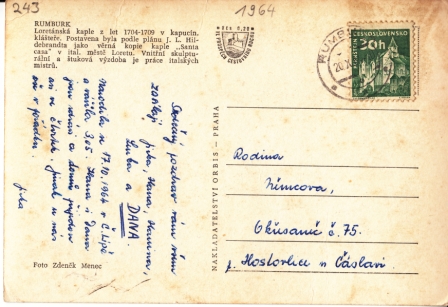 243
1964
RUMBURK
Loretánská kaple z let 1704-1709 v kapucín.
klášteře. Postavena byla podle plánu J. L. Hil-
debrandta jako věrná kopie kaple „Santa
casa" v ital. městě Loretu. Vnitřní skulptu-
rální a štuková výzdoba je práce italských
mistrů.
Srdečný pozdrav vám všem
zasílají
jirka, Hana, Hanina,
Luba a DANA.
Narodila se 17.10.1964 v Č. Lípě
a vážila 3,05. Hana i Dana
jsou
doma
ani ve čtvrtek. Jinak u nás
vše v pořádku.
jirka
Foto Zdeněk Menec
NAKLADATELSTVÍ ORBIS - PRAHA
RUMB
20h
ČESKOSLOVENSKO
Rodina
Zimcova,
Okřesaneč č. 75.
p. Hostovlice u Čáslavi